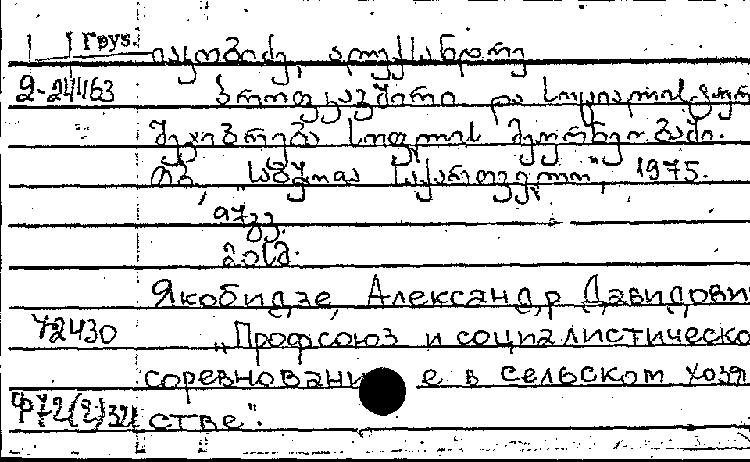 Груз.
იაკობიძე, ალექსანდრე
2-24463 პროფკავშირი და სოციალისტურ
შეჯიბრება სოფლის მეურნეობაში.
თბ., "საბჭოთა საქართველო", 1975.
97გვ.
20სმ.
Якобидзе, Александр Давидови
72430 „Профсоюз и социалистическо
соревновани е в сельском хозя
стве".